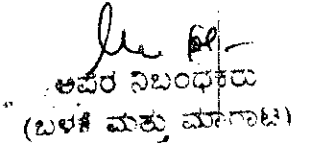 ಅಪರ ನಿಬಂಧಕರು
(ಬಳಕೆ ಮತ್ತು ಮಾಗಾಟ)